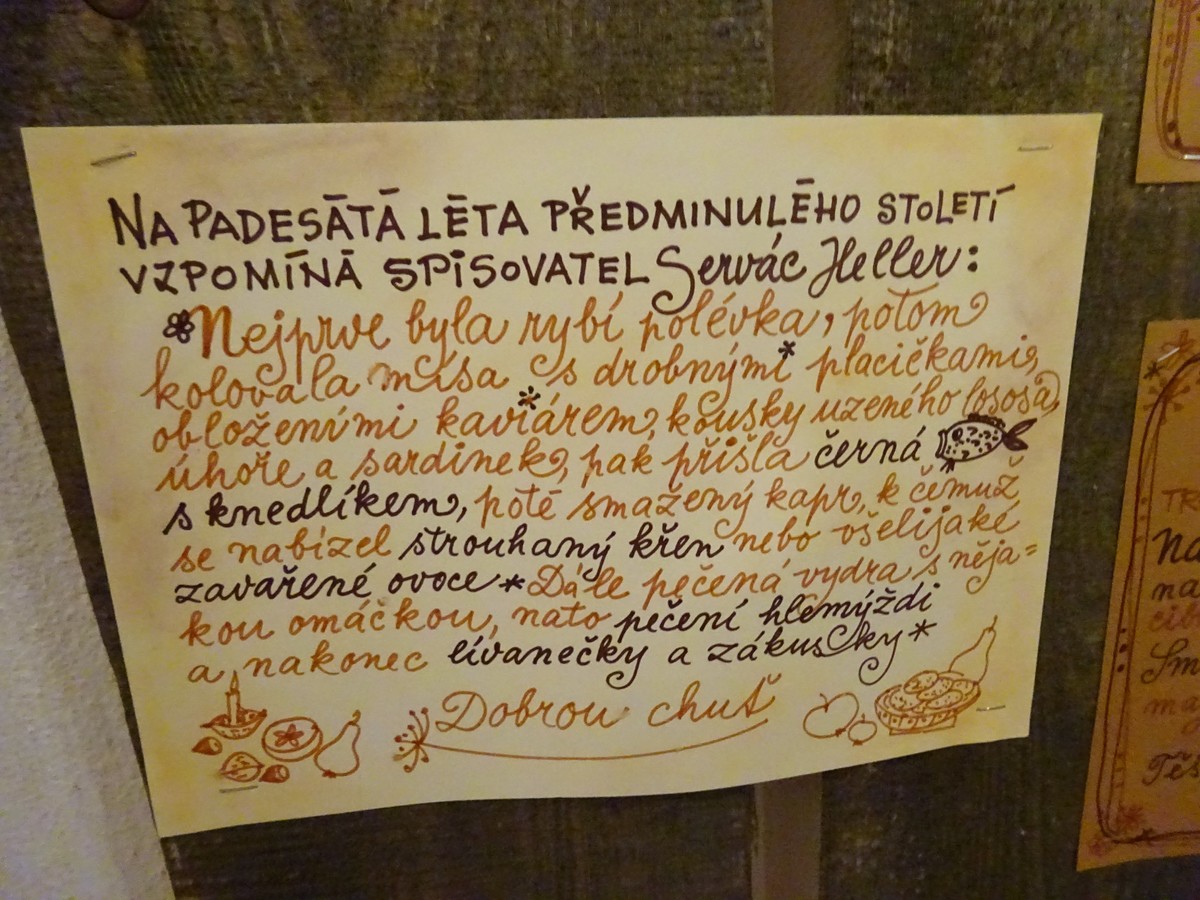 NA PADESÁTÁ LÉTA PŘEDMINULÉHO STOLETÍ
VZPOMÍNÁ SPISOVATEL Servác Heller:
Nejprve byla rybí polévka, potom
kolovala mísa s drobnými placičkami,
obloženými kaviárem, kousky uzeného lososa,
úhoře a sardinek, pak přišla černá
s knedlíkem, poté smažený kapr, k čemuž
se nabízel strouhaný křen nebo všelijaké
zavařené ovoce * Dále pečená vydra s něja=
kou omáčkou, nato pečení hlemýždi
a nakonec lívanečky a zákusky *
Dobrou chuť
TR
Na
na
cib
Sm
ma
Těs